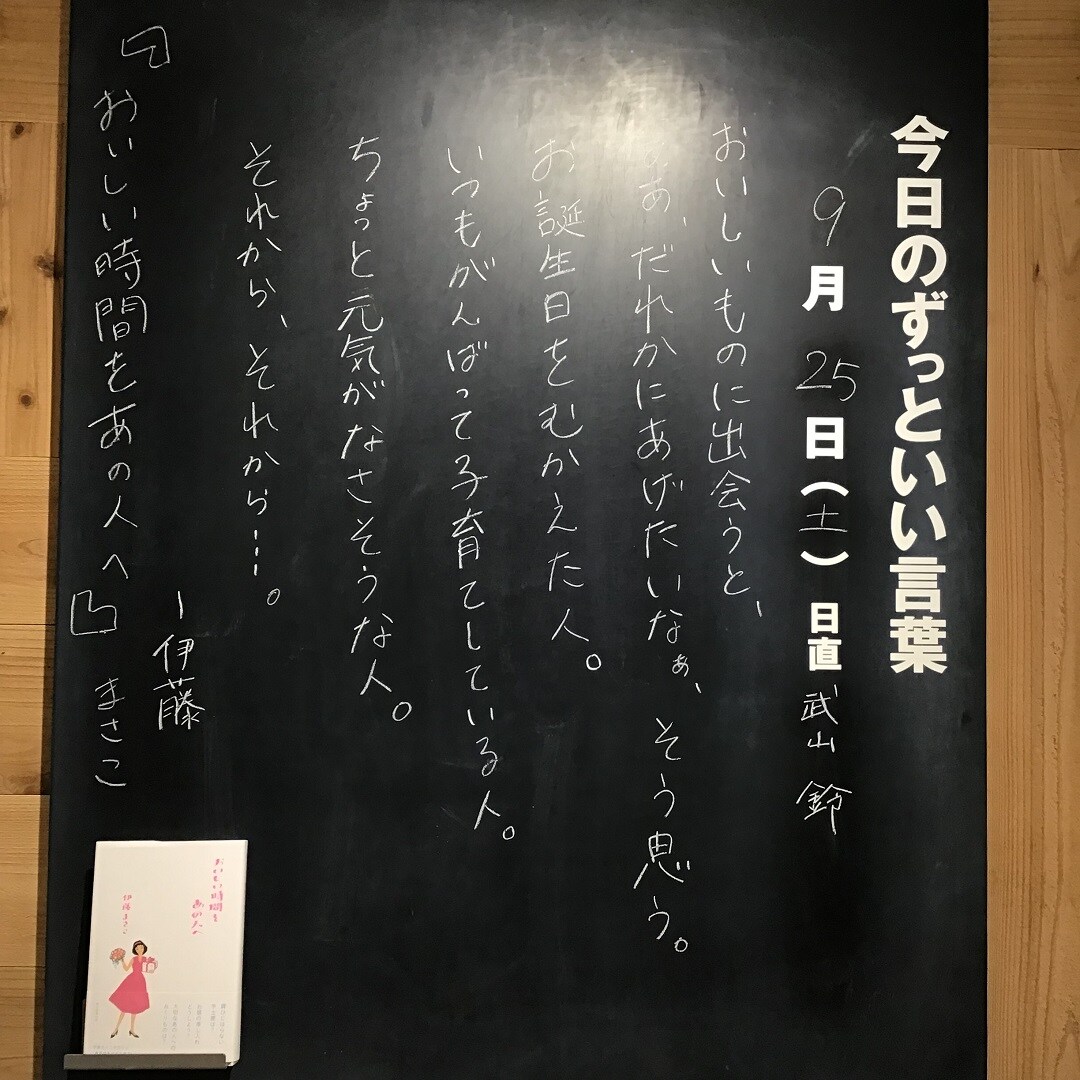 今日のずっといい言葉
9月25日(土)日直 武山 鈴
おいしいものに出会うと、
あぁ、だれかにあげたいなぁ、そう思う。
お誕生日をむかえた人。
いつもがんばって子育てしている人。
ちょっと元気がなさそうな人。
それから、それから…。
ー伊藤まさこ
『おいしい時間をあの人へ』
おいしい時間を
あの人へ
伊藤まさこ